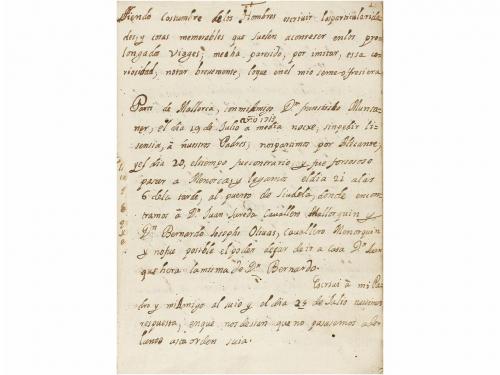 Siendo Costumbre delos Hombres escrivir las particularida
des, y cosas memorables que suelen acontecer enlos pro
longados Viages; meha paresido, por imitar, essa cu
riosidad, notar brevemente, loque enel mio seme offresiera.
Parti de Mallorca, con mi Amigo Dn. Fran.co Muntaner
año 1718
ner, el dia 19 de Julio a media noche, sin pedir li
sensia, à nuestros Padres, nos partimos por Alicante,
y el dia 20, el tiempo fue contrario, y fue forsoso
pasar a Menorca, y llegamos el dia 21 alas
6 dela tarde, al puerto de Siudela, donde encon
tramos à Dn. Juan Sureda Cavallero Mallorquin y
Dn. Bernardo Josephs Olivas, Cavallero Menorquin
y no fue posible el poder dejar de ir a casa Dn.
que hera la misma de Dn. Bernardo.
Escrivi à mi Pa
dre y mi Amigo al suio y el dia 25 de Julio tuvimos
respuesta, en que nos desian que no pasasemos ade
lante asta orden suia.